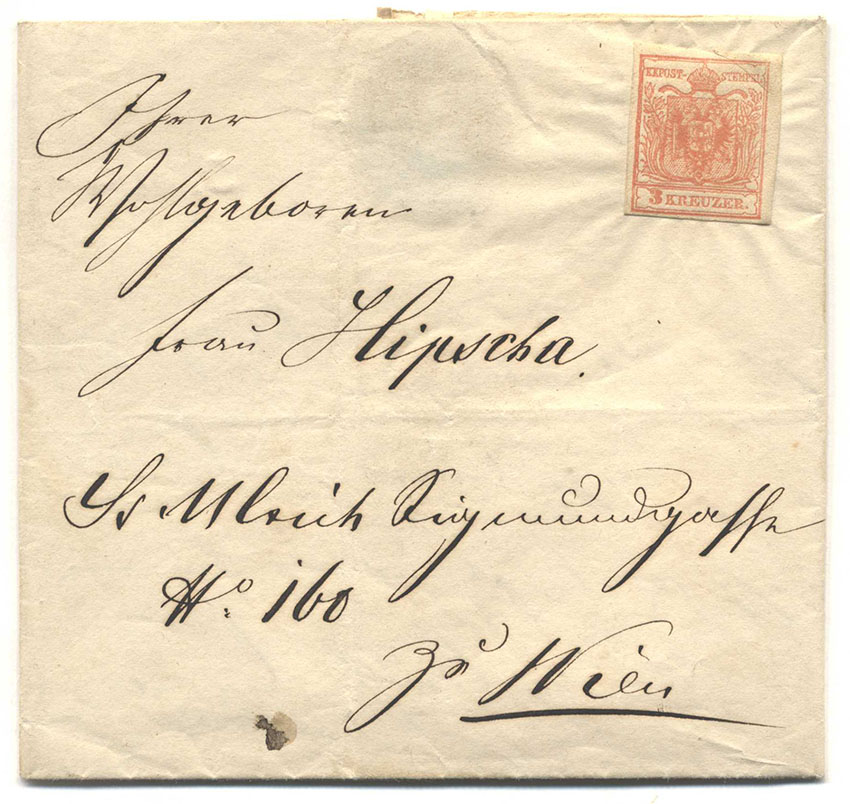 KKPOST-STEMPEL
3 KREUZER.
Ihrer
Wohlgeboren
Frau Hipscha.
St Ulrich Sigmundsgasse
No. 160
zu Wien